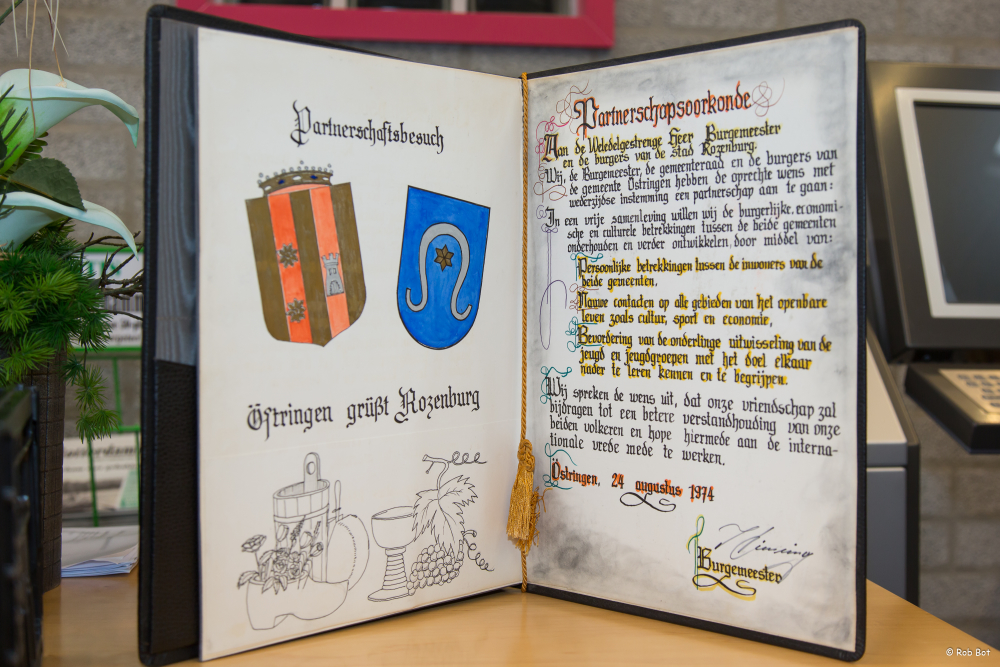 Partnerschaftsbesuch
Östringen grüßt Rozenburg
Partnerschapsoorkonde
Aan de Weledelgestrenge Heer Burgemeester
en de burgers van de stad Rozenburg.
Wij, de Burgemeester, de gemeenteraad en de burgers van
de gemeente Östringen hebben de oprechte wens met
wederzijdse instemming een partnerschap aan te gaan:
In een vrije samenleving willen wij de burgerlijke, economi-
sche en culturele betrekkingen tussen de beide gemeenten
onderhouden en verder ontwikkelen, door middel van:
Persoonlijke betrekkingen tussen de inwoners van de
beide gemeenten,
Nauwe contacten op alle gebieden van het openbare
leven zoals cultur, sport en economie,
Bevordering van de onderlinge uitwisseling van de
jeugd en jeugdgroepen met het doel elkaar
nader te leren kennen en te begrijpen.
Wij spreken de wens uit, dat onze vriendschap zal
bijdragen tot een betere verstandhouding van onze
beiden volkeren en hope hiermede aan de interna-
tionale vrede mede te werken.
Östringen, 24 augustus 1974
Burgemeester
© Rob Bot